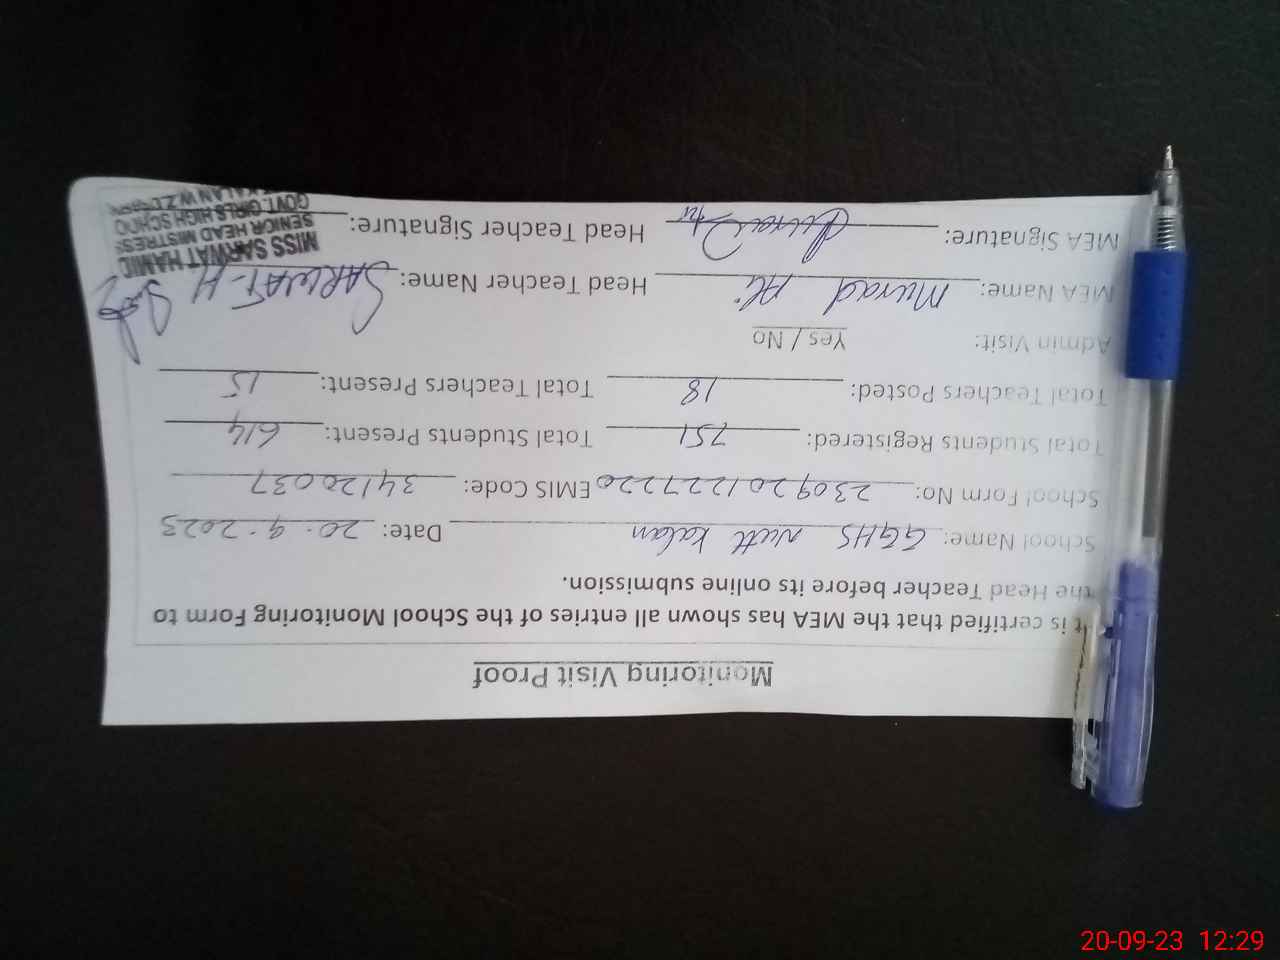 Monitoring Visit Proof
It is certified that the MEA has shown all entries of the School Monitoring Form to
the Head Teacher before its online submission.
School Name: GGHS Natt Kalan Date: 20.9.2023
School Form No: 230920122722 EMIS Code: 34120037
Total Students Registered: 751 Total Students Present: 614
Total Teachers Posted: 18 Total Teachers Present: 15
Admin Visit: Yes / No
MEA Name: Murad Ali Head Teacher Name: SARWAT-H
MEA Signature: Head Teacher Signature:
MISS SARWAT HAMID
SENIOR HEAD MISTRESS
GOVT. GIRLS HIGH SCHOO
KALAN W.Z.D
20-09-23 12:29